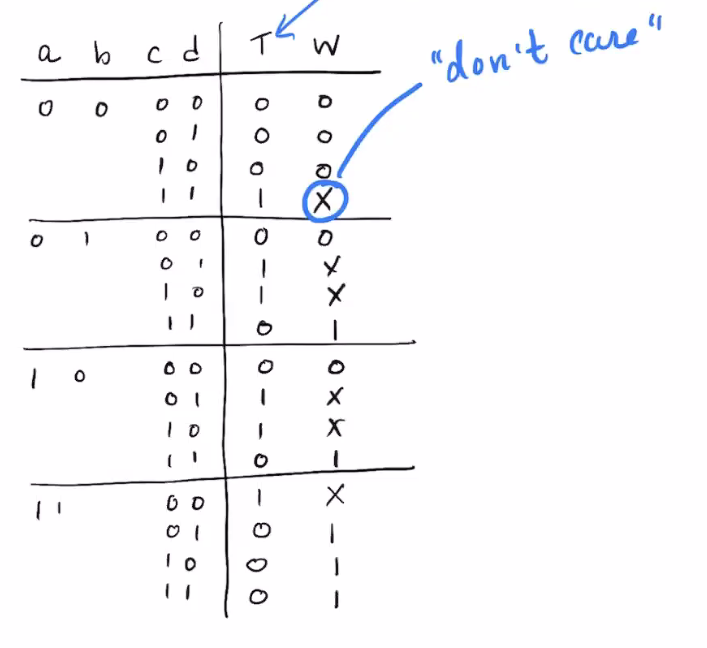 a b c d T W
"don't care"
0 0 0 0 0 0
0 1 0 0
1 0 0 0
1 1 1 X
0 1 0 0 0 0
0 1 1 X
1 0 1 X
1 1 0 1
1 0 0 0 0 0
0 1 1 X
1 0 1 X
1 1 0 1
1 1 0 0 1 X
0 1 0 1
1 0 0 1
1 1 0 1